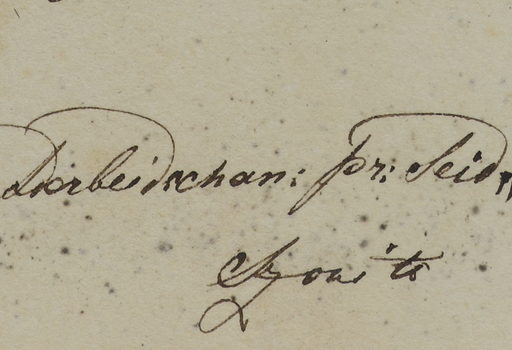 Aderbeidschan: pr: Seid
Szovits